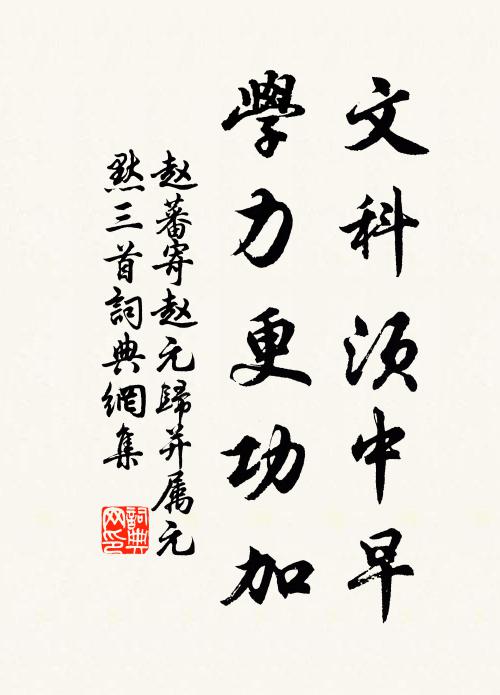 文科须中早
學力更功加
赵蕃寄赵元歸并属元
黙三首詞典網集
詞典网印